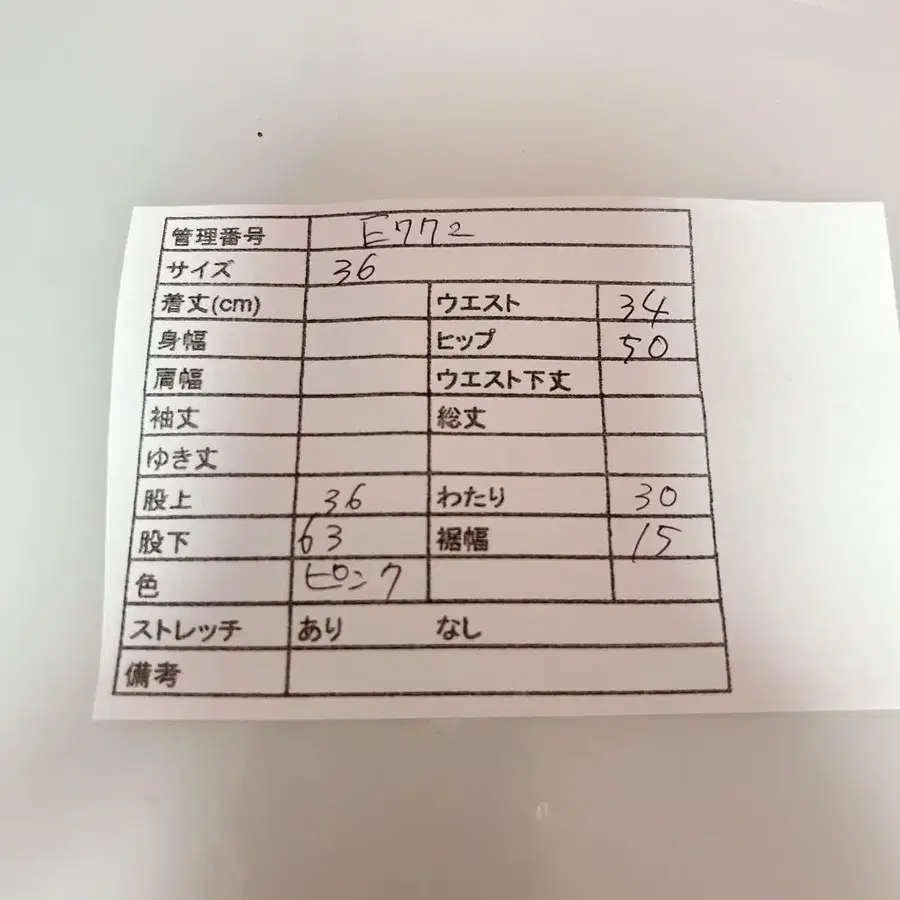 管理番号 E772
サイズ 36
着丈(cm) ウエスト 34
身幅 ヒップ 50
肩幅 ウエスト下丈
袖丈 総丈
ゆき丈
股上 36 わたり 30
股下 63 裾幅 15
色 ピンク
ストレッチ あり なし
備考